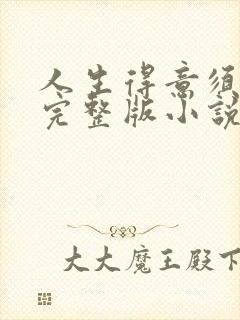 人生得意须
完整版小說
大大魔王殿下